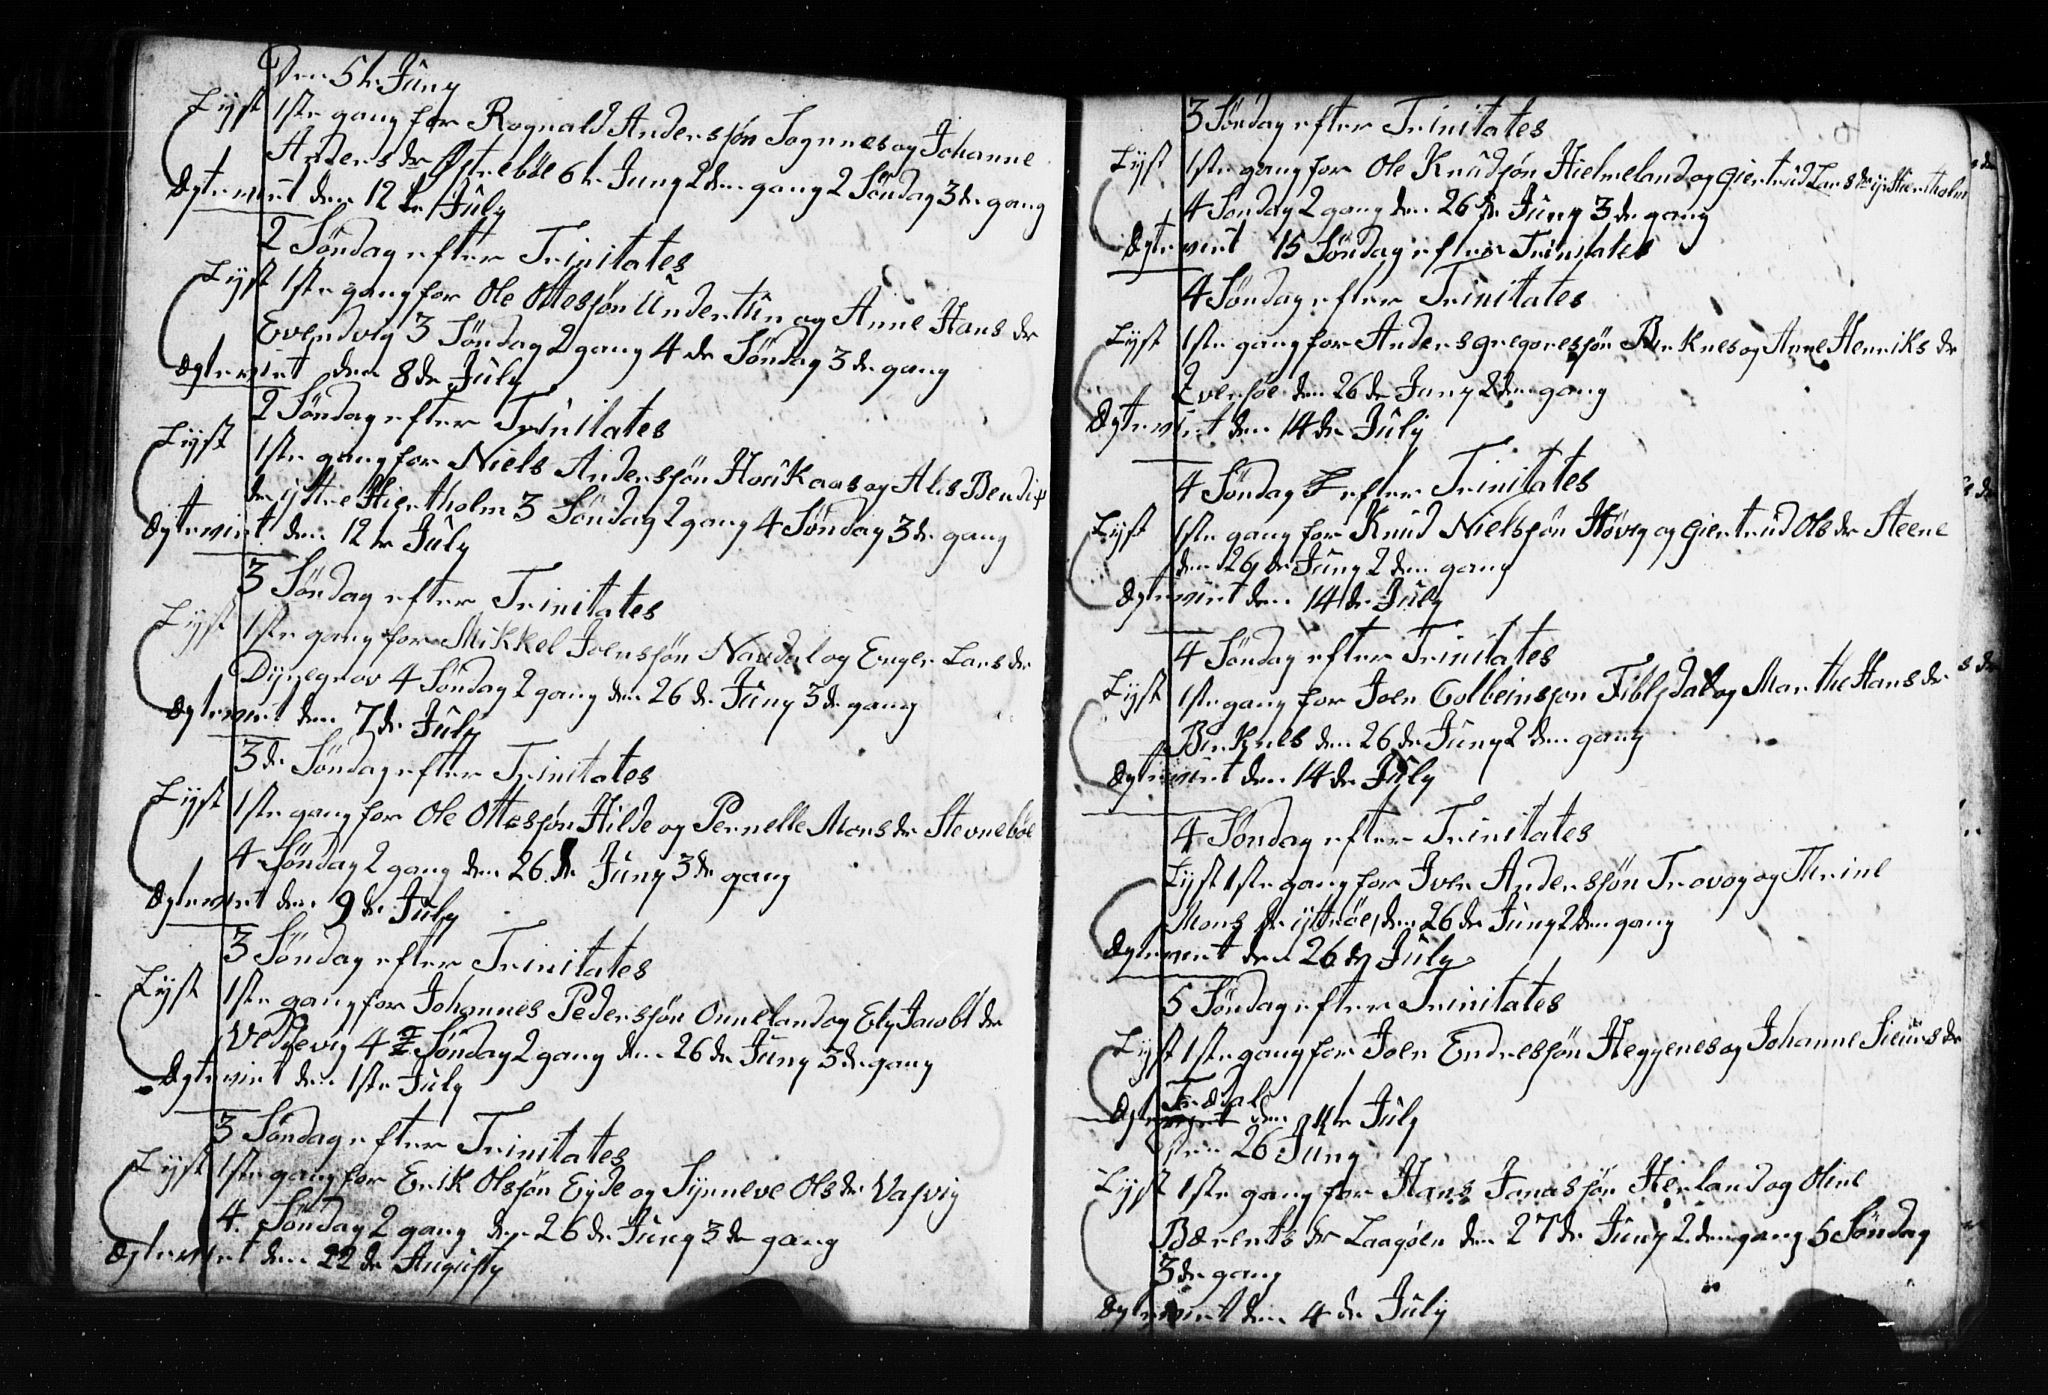 Den 5te Juny
Lyst 1ste gang for Rognald Andersøn Sognnes og Johanne
Anders dr Østrebøe 6te Juny 2den gang 2 Søndag 3de gang
Ægteviet den 12te July
2 Søndag efter Trinitates
Lyst 1ste gang for Ole Ottessøn Undertun og Anne Hans dr
Evendvig 3 Søndag 2 gang 4de Søndag 3de gang
Ægteviet den 8de July
2 Søndag efter Trinitates
Lyst 1ste gang for Niels Anderssøn Houkaas og Alis Bendix
dr yttre Hiertholm 3 Søndag 2 gang 4 Søndag 3de gang
Ægteviet den 12te July
3 Søndag efter Trinitates
Lyst 1ste gang for Mikkel Joenssøn Naudal og Enger Lars dr
Dyngenov 4 Søndag 2 gang den 26de Juny 3de gang
Ægteviet den 7de July
3de Søndag efter Trinitates
Lyst 1ste gang for Ole Ottessøn Hilde og Pernelle Mons dr Stevnebøe
4 Søndag 2 gang den 26de Juny 3de gang
Ægteviet den 9de July
3 Søndag efter Trinitates
Lyst 1ste gang for Johannes Pederssøn Onneland og Ely Jacobs dr
Vedvig 4 Søndag 2 gang den 26de Juny 3de gang
Ægteviet den 1ste July
3 Søndag efter Trinitates
Lyst 1ste gang for Erik Olssøn Eyde og Synneve Ols dr Vasvig
4 Søndag 2 gang den 26de Juny 3de gang
Ægteviet den 22de Augusty
3 Søndag efter Trinitates
Lyst 1ste gang for Ole Knudsøn Hielmeland og Giertrud Lars dr y Hiertholm
4 Søndag 2 gang den 26de Juny 3de gang
Ægteviet 15 Søndag efter Trinitates
4 Søndag efter Trinitates
Lyst 1ste gang for Anders Gregoressøn Birknes og Anne Henriks dr
Evensøe den 26de Juny 2den gang
Ægteviet den 14de July
4 Søndag efter Trinitates
Lyst 1ste gang for Knud Nielssøn Høvig og Giertrud Ols dr Steene
den 26de Juny 2den gang
Ægteviet den 14de July
4 Søndag efter Trinitates
Lyst 1ste gang for Joen Colbeinssøn Tiblsdal og Marthe Hans dr
Birknes den 26de Juny 2den gang
Ægteviet den 14de July
4 Søndag efter Trinitates
Lyst 1ste gang for Iver Anderssøn Trovog og Therine
Mons dr yttrøe den 26de Juny 2den gang
Ægteviet den 26de July
5 Søndag efter Trinitates
Lyst 1ste gang for Joen Endressøn Heggenes og Johanne Siurs dr
Trædal
Ægteviet den 11te July
den 26 Juny
Lyst 1ste gang for Hans Jonassøn Herland og Oline
Bærents dr Laagøen den 27de Juny 2den gang 5 Søndag
3de gang
Ægteviet den 4de July